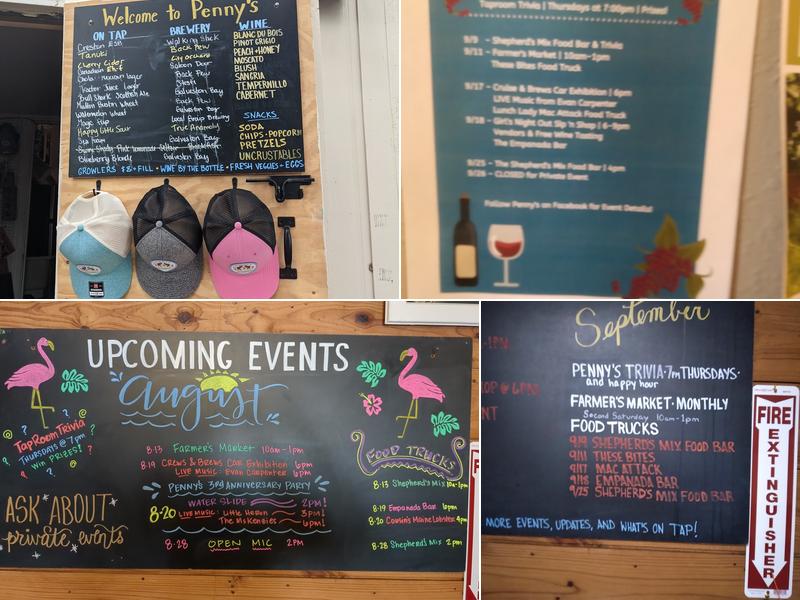 Welcome to Penny's
ON TAP
BREWERY
WINE
Creston ESB
Walking Stick
Tanuki
Back Pew
Cherry Cider
City Orchard
Saloon Door
Back Pew
Tractor Juice Lager
Bull Shark Scottish Ale
Galveston Bay
Back Pew
Watermelon Wheat
Galveston Bay
Magic Flip
Local Group Brewing
Happy Little Sour
True Anomaly
Galveston Bay
Blueberry Blondy
Galveston Bay
BLANC DU BOIS
PINOT GRIGIO
PEACH & HONEY
MOSCATO
BLUSH
SANGRIA
TEMPERNILLO
CABERNET
SNACKS
SODA
CHIPS · POPCORN
PRETZELS
UNCRUSTABLES
GROWLERS $8 + FILL · WINE BY THE BOTTLE · FRESH VEGGIES - EGGS
Taproom Trivia | Thursdays at 7:00pm | Prizes!
9/9 - Shepherd's Mix Food Bar & Trivia
9/11 - Farmer's Market | 10am-1pm
These Bites Food Truck
9/17 - Cruise & Brews Car Exhibition | 6pm
LIVE Music from Evan Carpenter
Lunch Lady Mac Attack Food Truck
9/18 - Girl's Night Out Sip 'n Shop | 6-9pm
Vendors & Free Wine Tasting
The Empanada Bar
9/25 - The Shepherd's Mix Food Bar | 4pm
9/26 - CLOSED for Private Event
Follow Penny's on Facebook for Event Details!
UPCOMING EVENTS
August
? ? ? ? ? ?
TapRoom Trivia
THURSDAYS @ 7pm
Win PRIZES!
ASK ABOUT
private events
8·13 Farmer's Market 10am-1pm
8·19 CREWS & BREWS Car Exhibition 6pm
LIVE MUSIC: Evan Carpenter 6pm
PENNY'S 3RD ANNIVERSARY PARTY
WATER SLIDE 2PM!
8·20 LIVE MUSIC: Little Heron 3PM!
The McKenzies 6PM!
8·28 OPEN MIC 2PM
FOOD TRUCKS
8·13 Shepherd's Mix 10a-1pm
8·19 Empanada Bar 6pm
8·20 Cousin's Maine Lobster 4pm
8·28 Shepherd's Mix 2pm
F
September
-1PM
OP @ 6PM
NT
PENNY'S TRIVIA·7pm THURSDAYS·
and happy hour
FARMER'S MARKET·MONTHLY
Second Saturday 10am-1pm
FOOD TRUCKS
9/9 SHEPHERD'S MIX FOOD BAR
9/11 THESE BITES
9/17 MAC ATTACK
9/18 EMPANADA BAR
9/25 SHEPHERD'S MIX FOOD BAR
MORE EVENTS, UPDATES, AND WHAT'S ON TAP!
FIRE
EXTINGUISHER